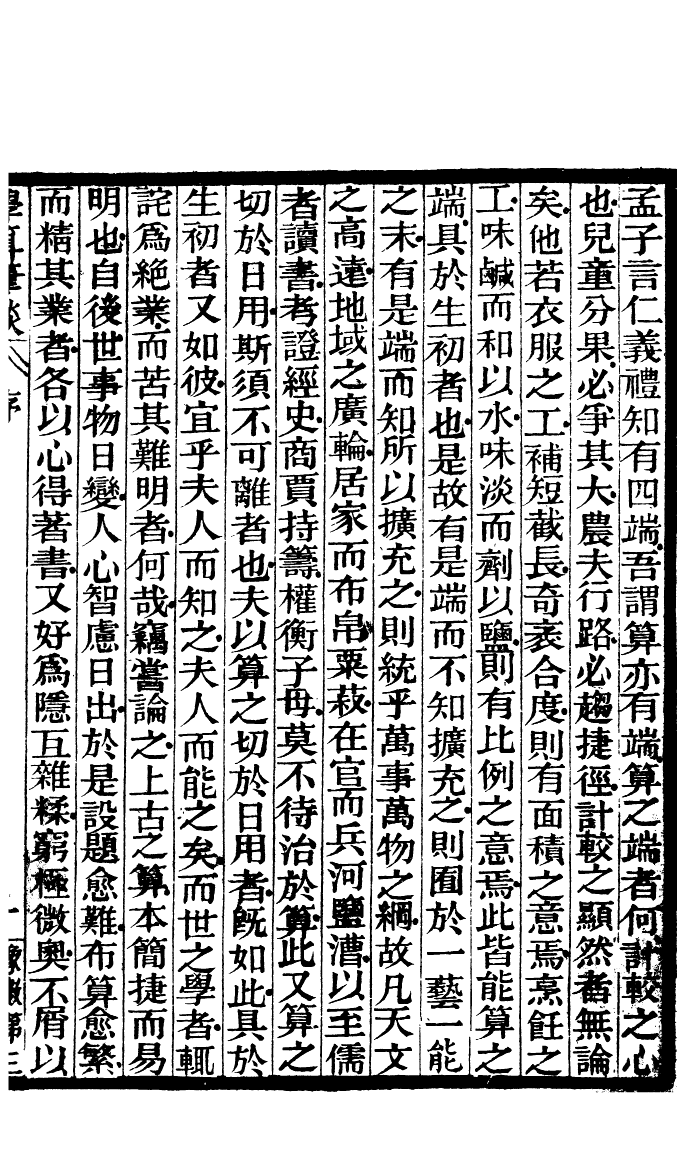 孟子言仁義禮知有四端吾謂算亦有端算之端者何計較之心
也兒童分果必爭其大農夫行路必趨捷徑計較之顯然者無論
矣他若衣服之工補短截長奇袤合度則有面積之意焉烹飪之
工味鹹而和以水味淡而劑以鹽則有比例之意焉此皆能算之
端具於生初者也是故有是端而不知擴充之則囿於一藝一能
之末有是端而知所以擴充之則統乎萬事萬物之綱故凡天文
之高遠地域之廣輪居家而布帛粟菽在官而兵河鹽漕以至儒
者讀書考證經史商賈持籌權衡子母莫不待治於算此又算之
切於日用斯須不可離者也夫以算之切於日用者旣如此具於
生初者又如彼宜乎夫人而知之夫人而能之矣而世之學者輒
詫爲絕業而苦其難明者何哉竊嘗論之上古之算本簡捷而易
明也自後世事物日變人心智慮日出於是設題愈難布算愈繁
而精其業者各以心得著書又好爲隱互雜糅窮極微奧不屑以
學算筆談 序